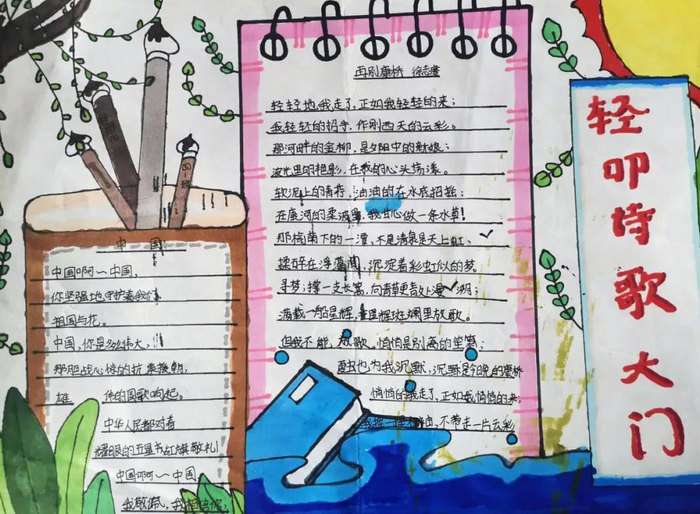 再别康桥 徐志摩
轻轻地我走了,正如我轻轻的来;
我轻轻的招手,作别西天的云彩。
那河畔的金柳,是夕阳中的新娘;
波光里的艳影,在我的心头荡漾。
软泥上的青荇,油油的在水底招摇;
在康河的柔波里,我甘心做一条水草!
那榆荫下的一潭,不是清泉是天上虹;
揉碎在浮藻间,沉淀着彩虹似的梦。
寻梦;撑一支长篙,向青草更青处漫溯;
满载一船星辉,星辉斑斓里放歌。
但我不能放歌,悄悄是别离的笙箫;
夏虫也为我沉默,沉默是今晚的康桥
悄悄的我走了,正如我悄悄的来;
不带走一片云彩
中国
中国啊~中国,
你坚强地守护着我们
祖国与花。
中国,你是多么伟大,
那胆战心惊的抗
雄 的国歌响起。
中华人民都对着
耀眼的五星红旗敬礼!
中国啊~中国
我敬佩,我
轻叩诗歌大门